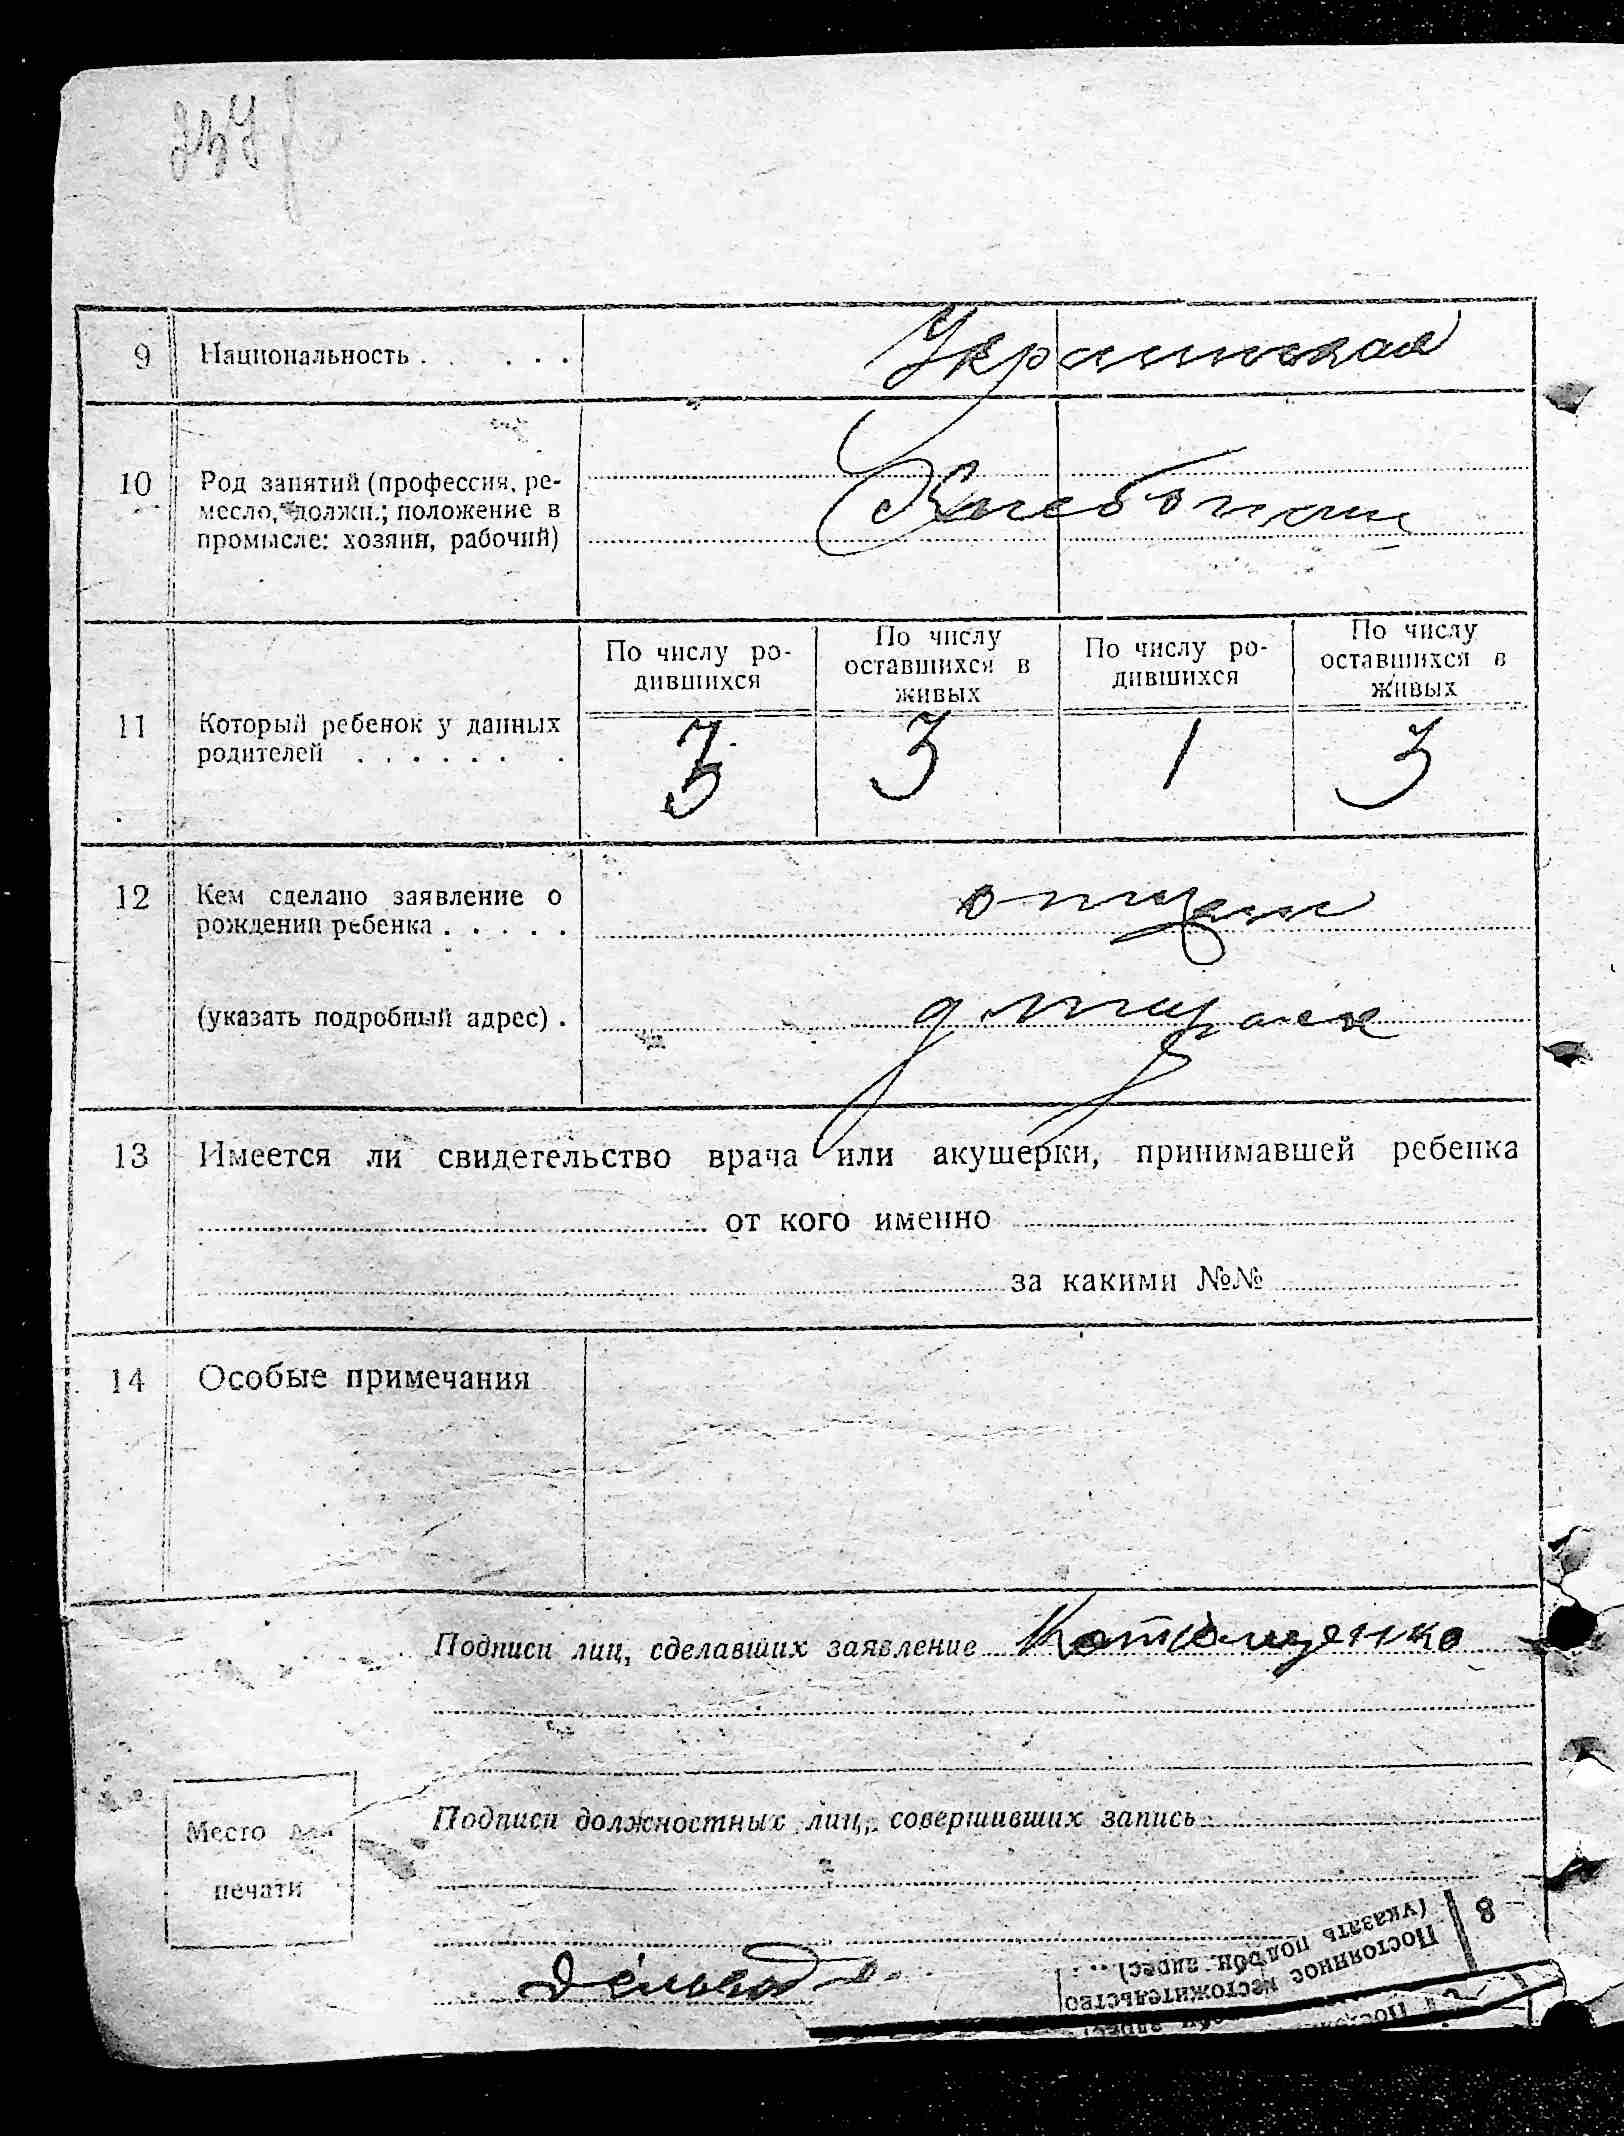 9 Национальность . . . . . Украинская
10 Род занятий (профессия, ре-
месло, должн.; положение в
промысле: хозяин, рабочий)
Хлебопаш
По числу ро-
дившихся
По числу
оставшихся в
живых
По числу ро-
дившихся
По числу
оставшихся в
живых
11 Который ребенок у данных
родителей . . . . . . .
3 3 1 3
12 Кем сделано заявление о
рождении ребенка . . . . .
отцем
(указать подробный адрес) .
13 Имеется ли свидетельство врача или акушерки, принимавшей ребенка
от кого именно
за какими №№
14 Особые примечания
Подписи лиц, сделавших заявление
Подписи должностных лиц, совершивших запись
Место для
печати
8
Постоянное местожительство
(указать подробн. адрес) . . .